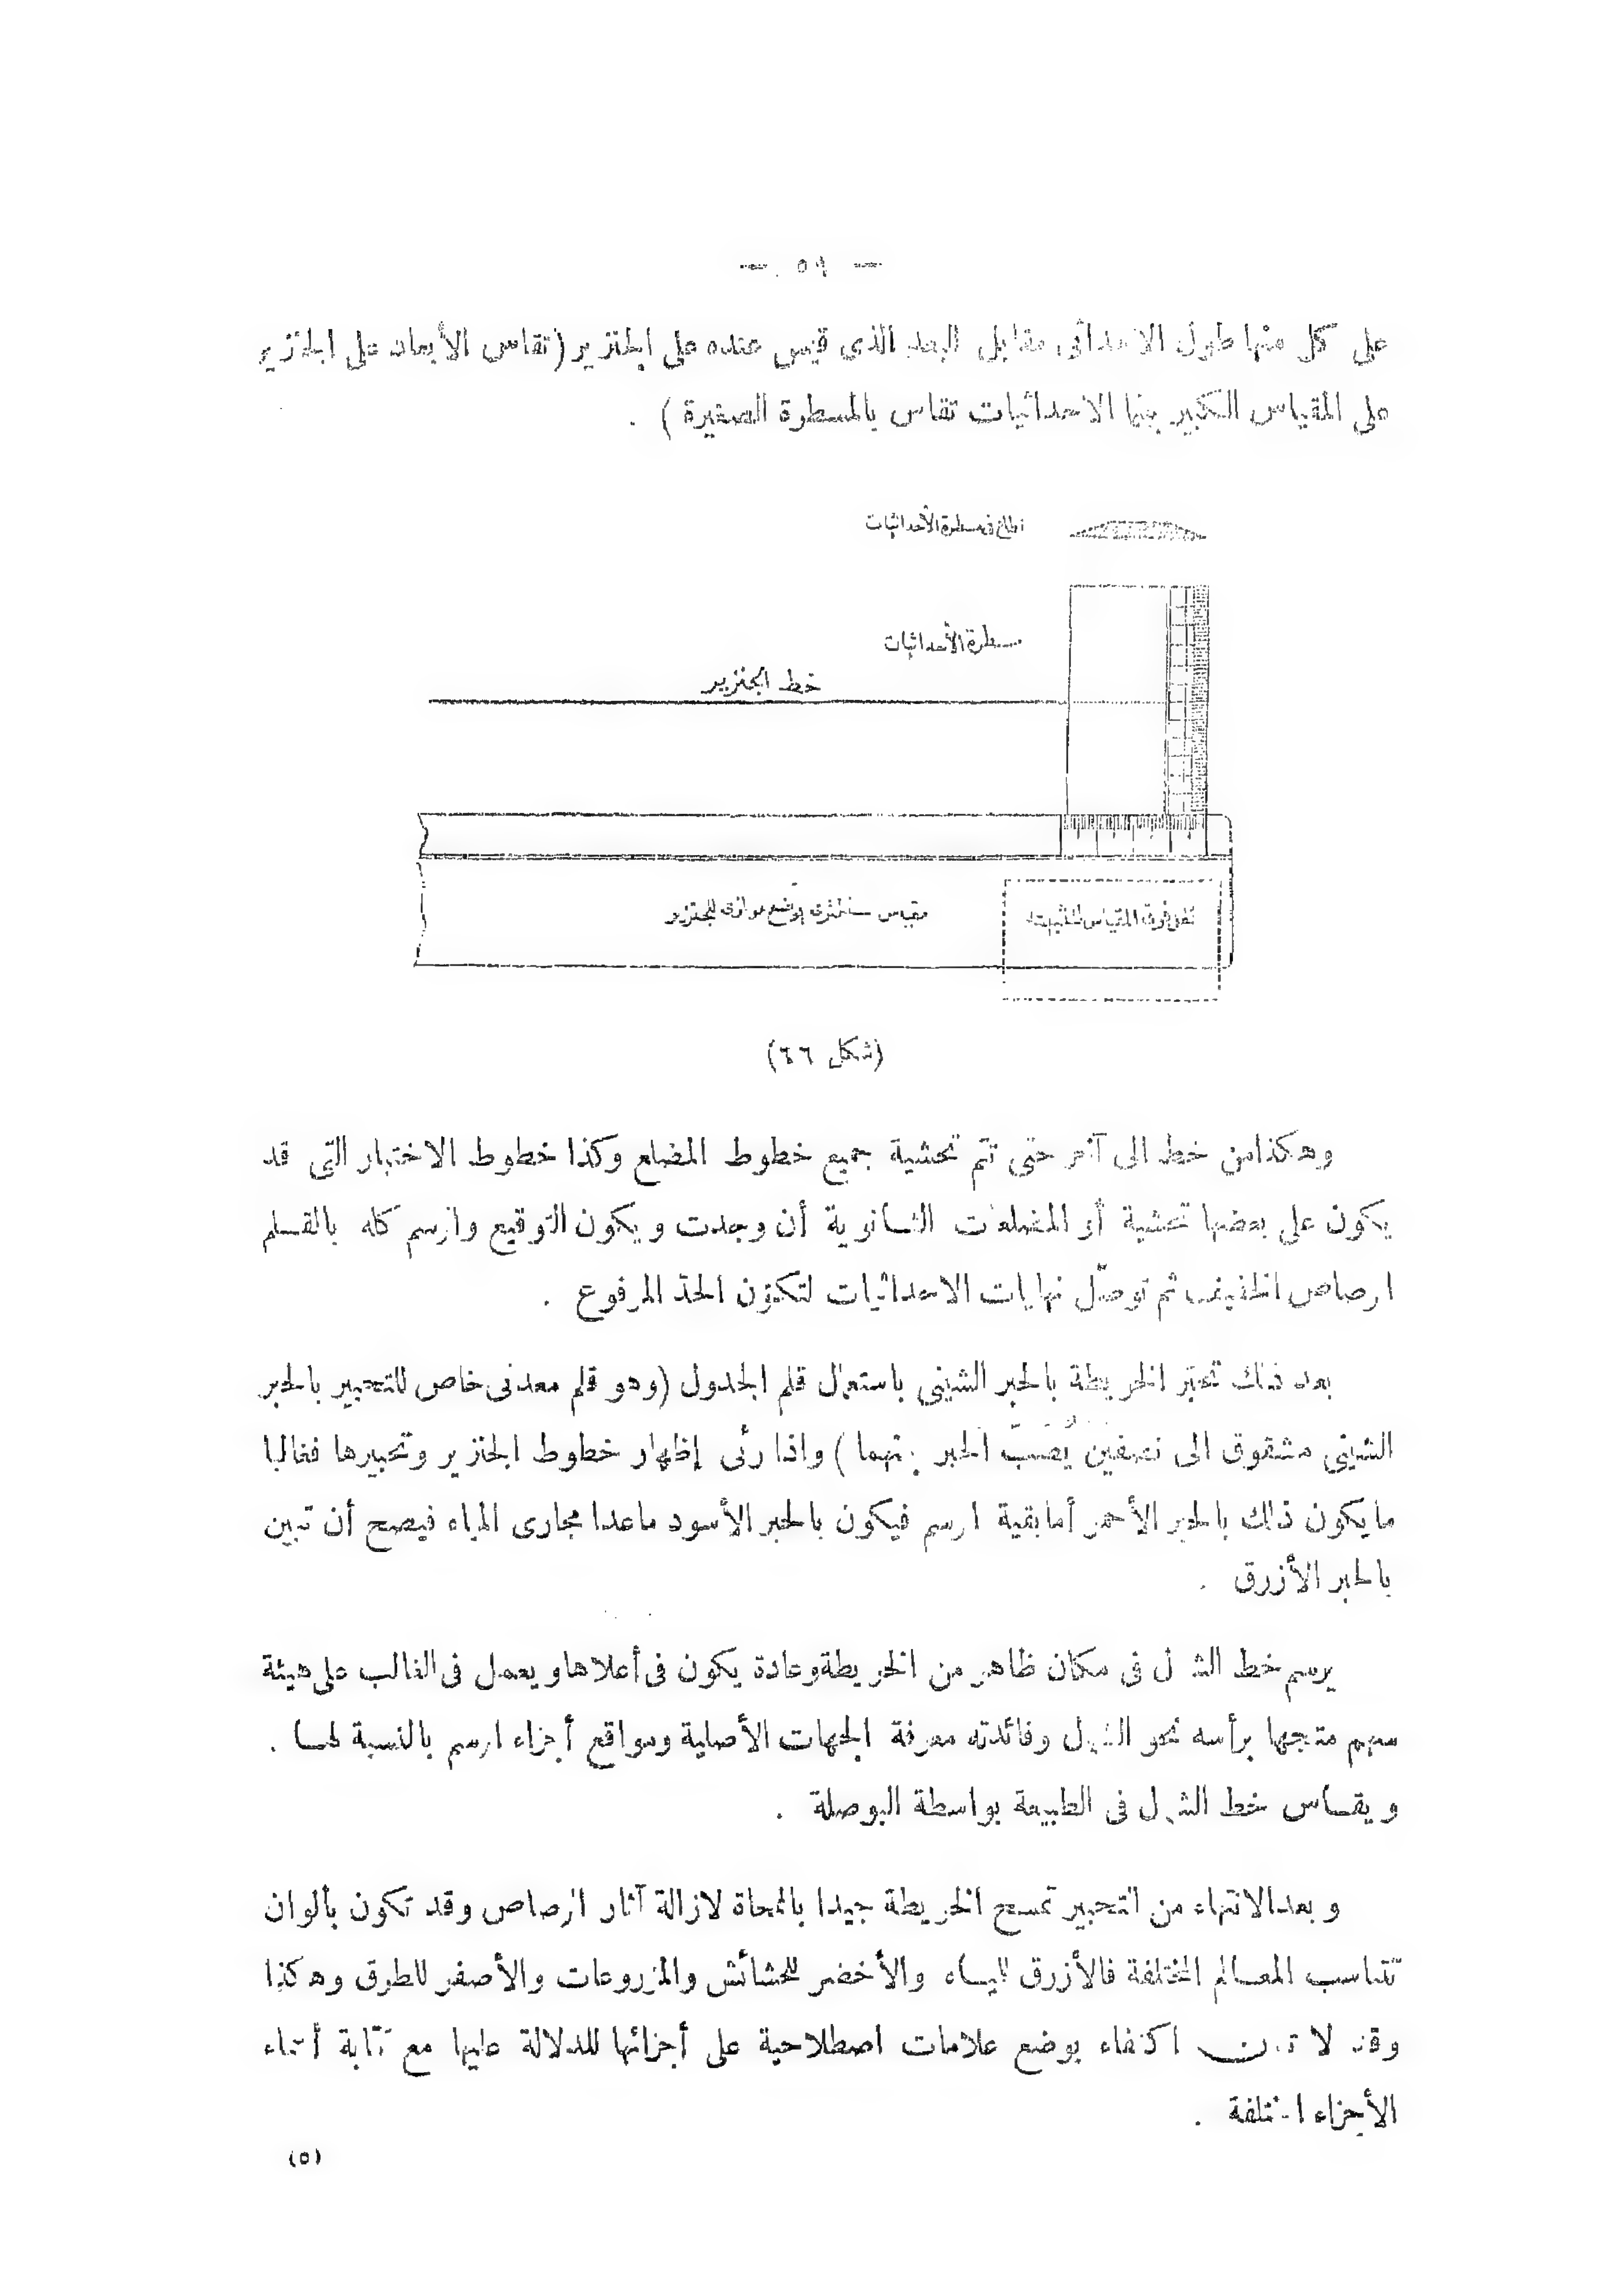 — ٥٩ —
على كل منها طول الاحداثى مقابل البعد الذى قيس عنده على الجنزير (تقاس الأبعاد على الجنزير
على المقياس الكبير بينما الاحداثيات تقاس بالمسطرة الصغيرة) .
مسطرة الأحداثيات
مسطرة الأحداثيات
خط الجنزير
مقياس سنتمترى يوضع موازى للجنزير
ثقل فوق المقياس لتثبيته
(شكل ٦٦)
وهكذا من خط الى آخر حتى تتم تحشية جميع خطوط المضلع وكذا خطوط الاختبار التى قد
يكون على بعضها تحشية أو المضلعات الثانوية أن وجدت ويكون التوقيع والرسم كله بالقلم
الرصاص الخفيف ثم توصّل نهايات الاحداثيات لتكوّن الحدّ المرفوع .
بعد ذلك تحبّر الخريطة بالحبر الشينى باستعمال قلم الجدول (وهو قلم معدنى خاص للتحبير بالحبر
الشينى مشقوق الى نصفين يُصَبّ الحبر بينهما) واذا رئى إظهار خطوط الجنزير وتحبيرها فغالبا
ما يكون ذلك بالحبر الأحمر أما بقية الرسم فيكون بالحبر الأسود ماعدا مجارى المياه فيصح أن تبين
بالحبر الأزرق .
يرسم خط الشمال فى مكان ظاهر من الخريطة وعادة يكون فى أعلاها ويعمل فى الغالب على هيئة
سهم متجها برأسه نحو الشمال وفائدته معرفة الجهات الأصلية ومواقع أجزاء الرسم بالنسبة لها .
ويقاس خط الشمال فى الطبيعة بواسطة البوصلة .
وبعد الانتهاء من التحبير تمسح الخريطة جيدا بالممحاة لازالة آثار الرصاص وقد تكون بألوان
تتناسب المعالم المختلفة فالأزرق للمياه والأخضر للحشائش والمزروعات والأصفر للطرق وهكذا
وقد لا تلون اكتفاء بوضع علامات اصطلاحية على أجزائها للدلالة عليها مع كتابة أسماء
الأجزاء المختلفة .
(٥)